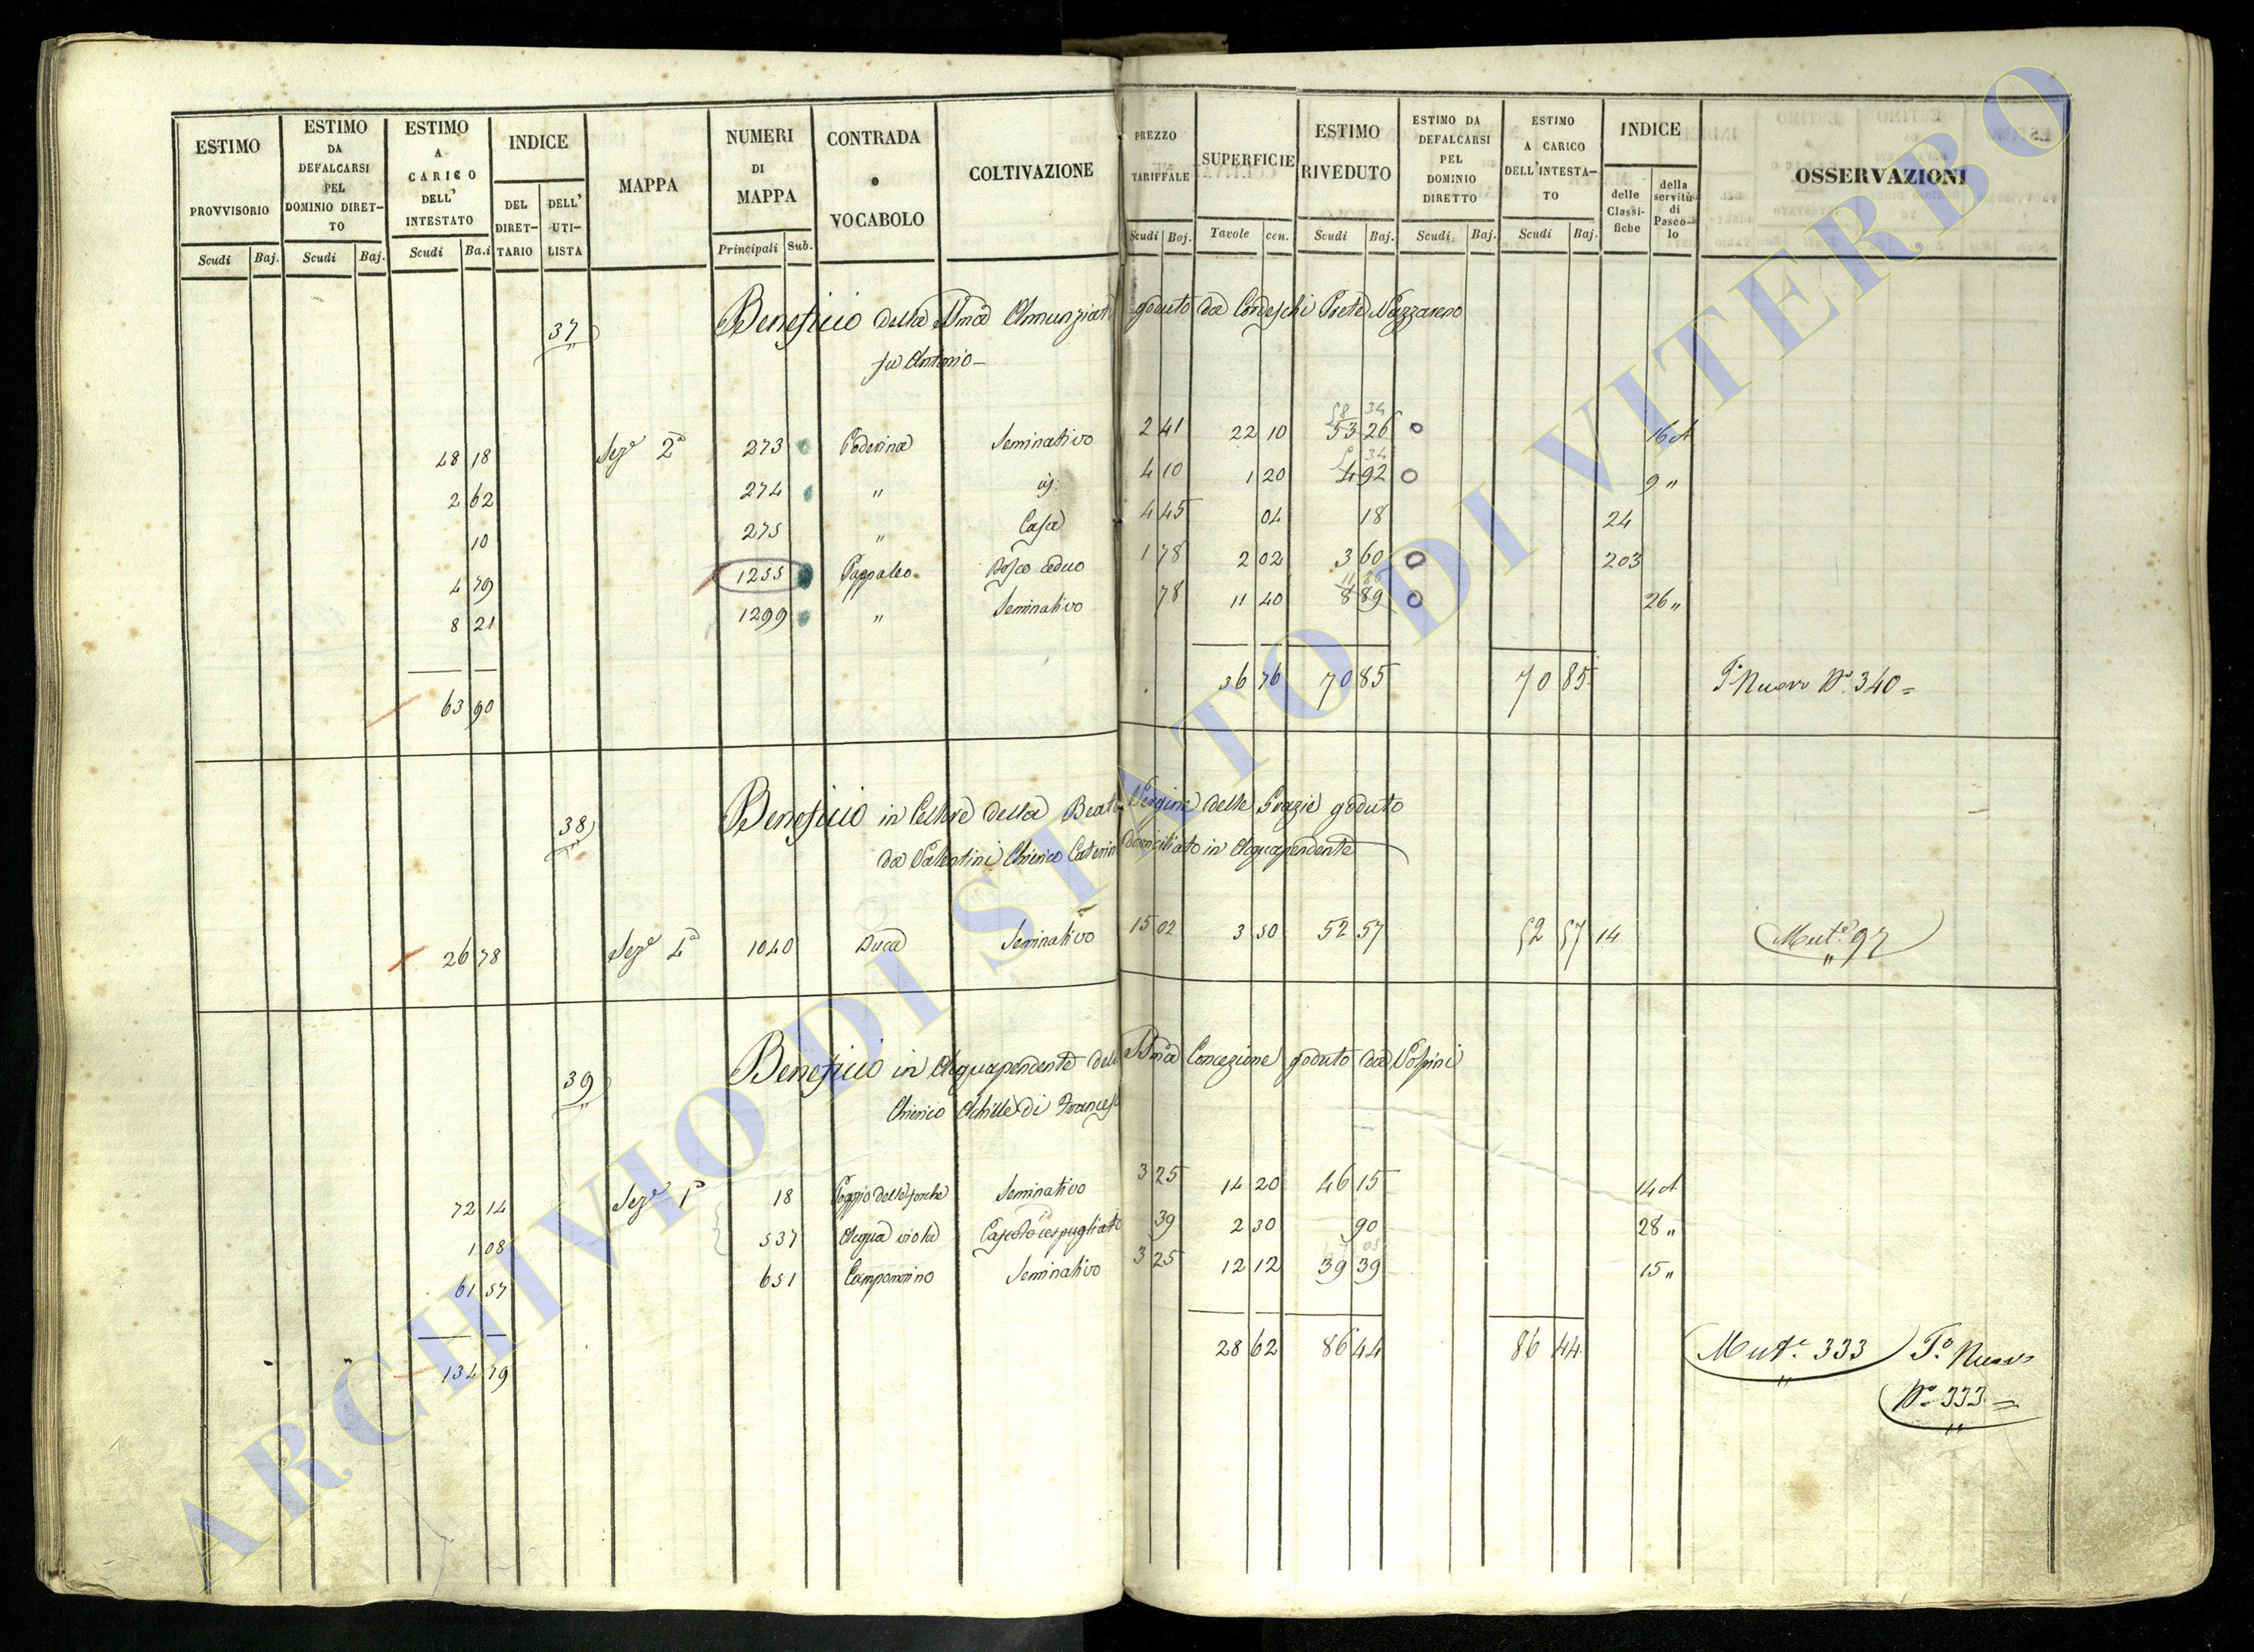 ESTIMO PROVVISORIO Scudi Baj.
ESTIMO DA DEFALCARSI PEL DOMINIO DIRET-TO Scudi Baj.
ESTIMO A CARICO DELL' INTESTATO Scudi Ba.i
INDICE DEL DIRET-TARIO DELL' UTI-LISTA
MAPPA
NUMERI DI MAPPA Principali Sub.
CONTRADA o VOCABOLO
COLTIVAZIONE
PREZZO TARIFFALE Scudi Baj.
SUPERFICIE Tavole cen.
ESTIMO RIVEDUTO Scudi Baj.
ESTIMO DA DEFALCARSI PEL DOMINIO DIRETTO Scudi Baj.
ESTIMO A CARICO DELL'INTESTA-TO Scudi Baj.
INDICE delle Classi-fiche della servitù di Pasco-lo
OSSERVAZIONI
37 Beneficio della SSma Annunziata goduto da Cordeschi Prete Nazzareno
fu Antonio
58 34
48 18 Seze 2a 273 Poderina Seminativo 2 41 22 10 53 26 16 A
5 34
2 62 274 " id: 4 10 1 20 4 92 9 "
10 275 " Casa 4 45 04 18 24
4 79 1255 Pappaleo Bosco ceduo 1 78 2 02 3 60 203
11 86
8 21 1299 " Seminativo 78 11 40 8 89 26 "
63 90 36 76 70 85 70 85 Po Nuovo No 340 =
38 Beneficio in Cellere della Beata Vergine delle Grazie goduto
da Valentini Chierico domiciliato in Acquapendente
26 78 Seze 4a 1040 Duca Seminativo 15 02 3 50 52 57 52 57 14 Mute 97
39 Beneficio in Acquapendente della Bma Concezione goduto da Vospini
Chierico Achille di Francesco
72 14 Seze 1a 18 Poggio delle forche Seminativo 3 25 14 20 46 15 14 A
1 08 537 Acqua viola Pascolo cespugliato 39 2 30 90 28 "
61 57 651 Campomorino Seminativo 3 25 12 12 39 39 15 "
134 79 28 62 86 44 86 44 Mute 333 Po Nuovo
No 333 =
ARCHIVIO DI STATO DI VITERBO